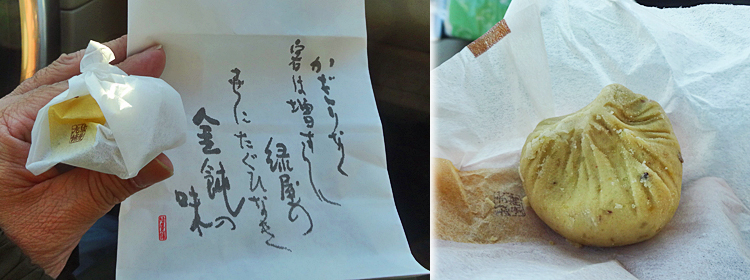 かぎりなく
客は増すらし
緑屋の
世にたぐひなき
金飩の
味